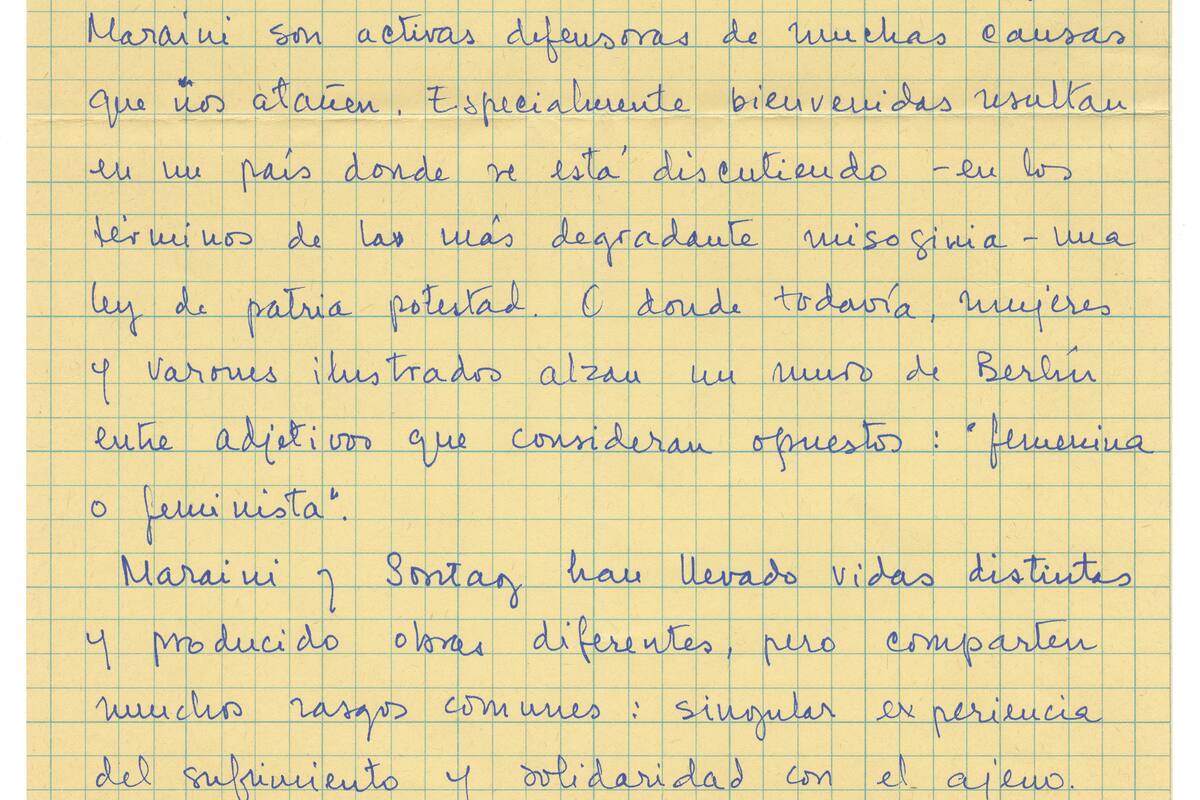 Maraini son activas defensoras de muchas causas
que nos atañen. Especialmente bienvenidas resultan
en un país donde se está discutiendo - en los
términos de la más degradante misoginia - una
ley de patria potestad. O donde todavía, mujeres
y varones ilustrados alzan un muro de Berlín
entre adjetivos que consideran opuestos : "femenina
o feminista".
Maraini y Sontag han llevado vidas distintas
y producido obras diferentes, pero comparten
muchos rasgos comunes : singular experiencia
del sufrimiento y solidaridad con el ajeno.